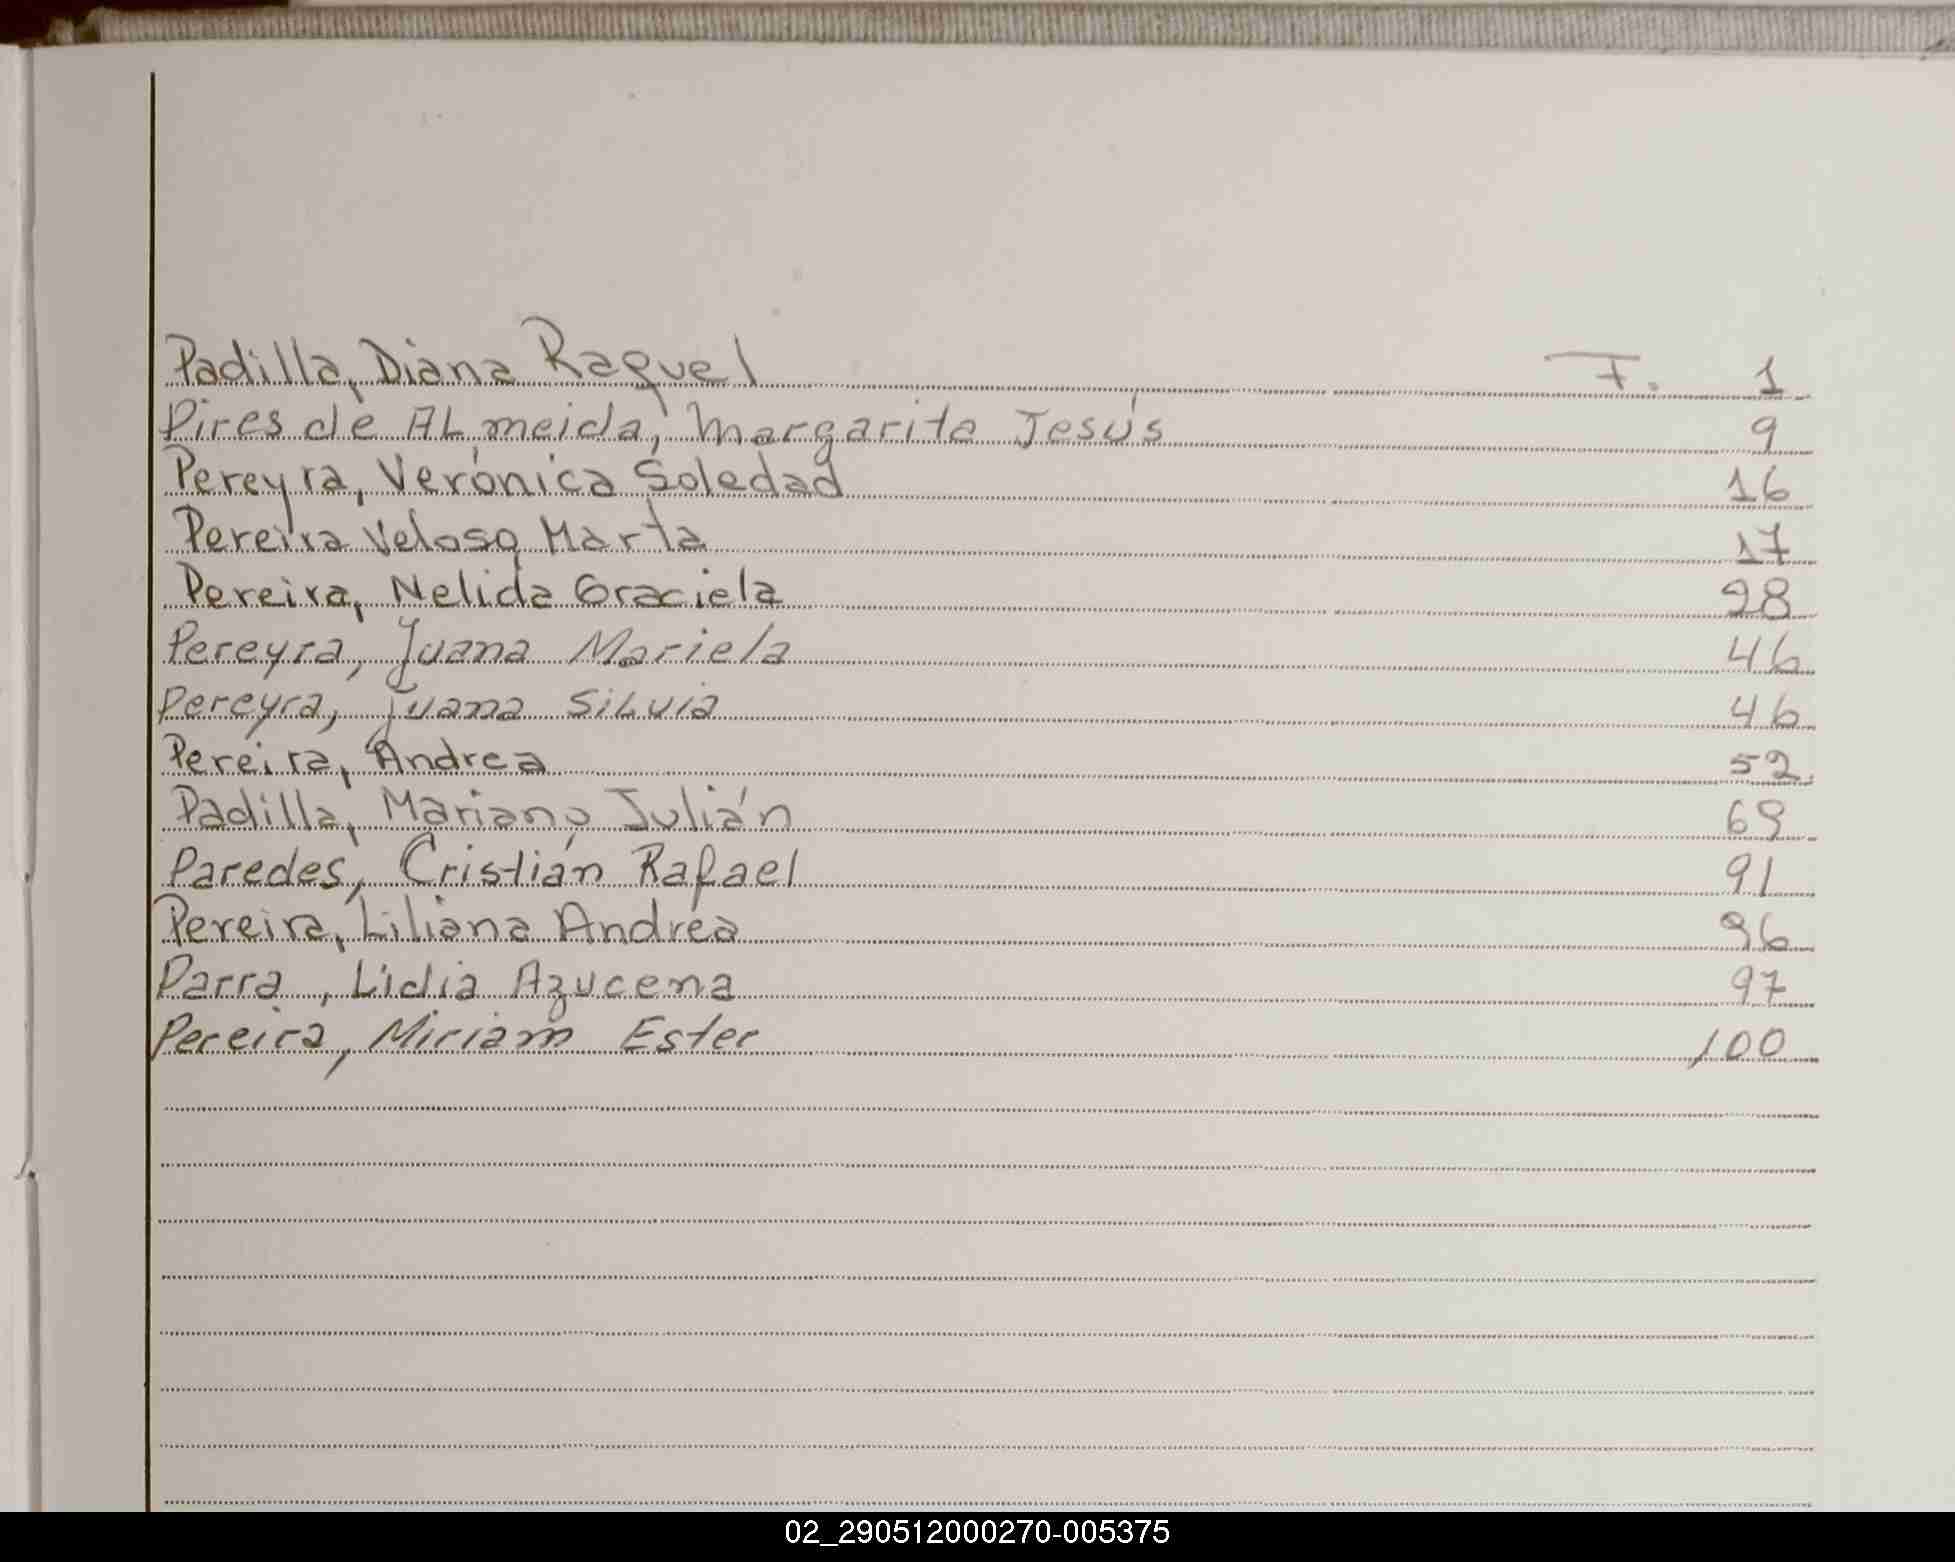 Padilla, Diana Raquel F. 1
Pires de ALmeida, Margarita Jesús 9
Pereyra, Verónica Soledad 16
Pereira Veloso, Marta 17
Pereira, Nelida Graciela 28
Pereyra, Juana Mariela 46
Pereyra, Juana SiLvia 46
Pereira, Andrea 52
Padilla, Mariano Julián 69
Paredes, Cristián Rafael 91
Pereira, Liliana Andrea 96
Parra, Lidia Azucena 97
Pereira, Miriam Ester 100
02_290512000270-005375